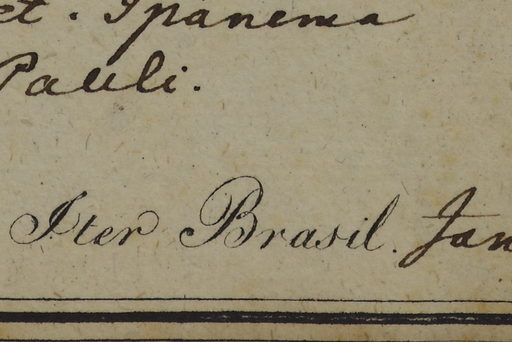 et. Ipanema
Pauli.
Iter Brasil. Jan